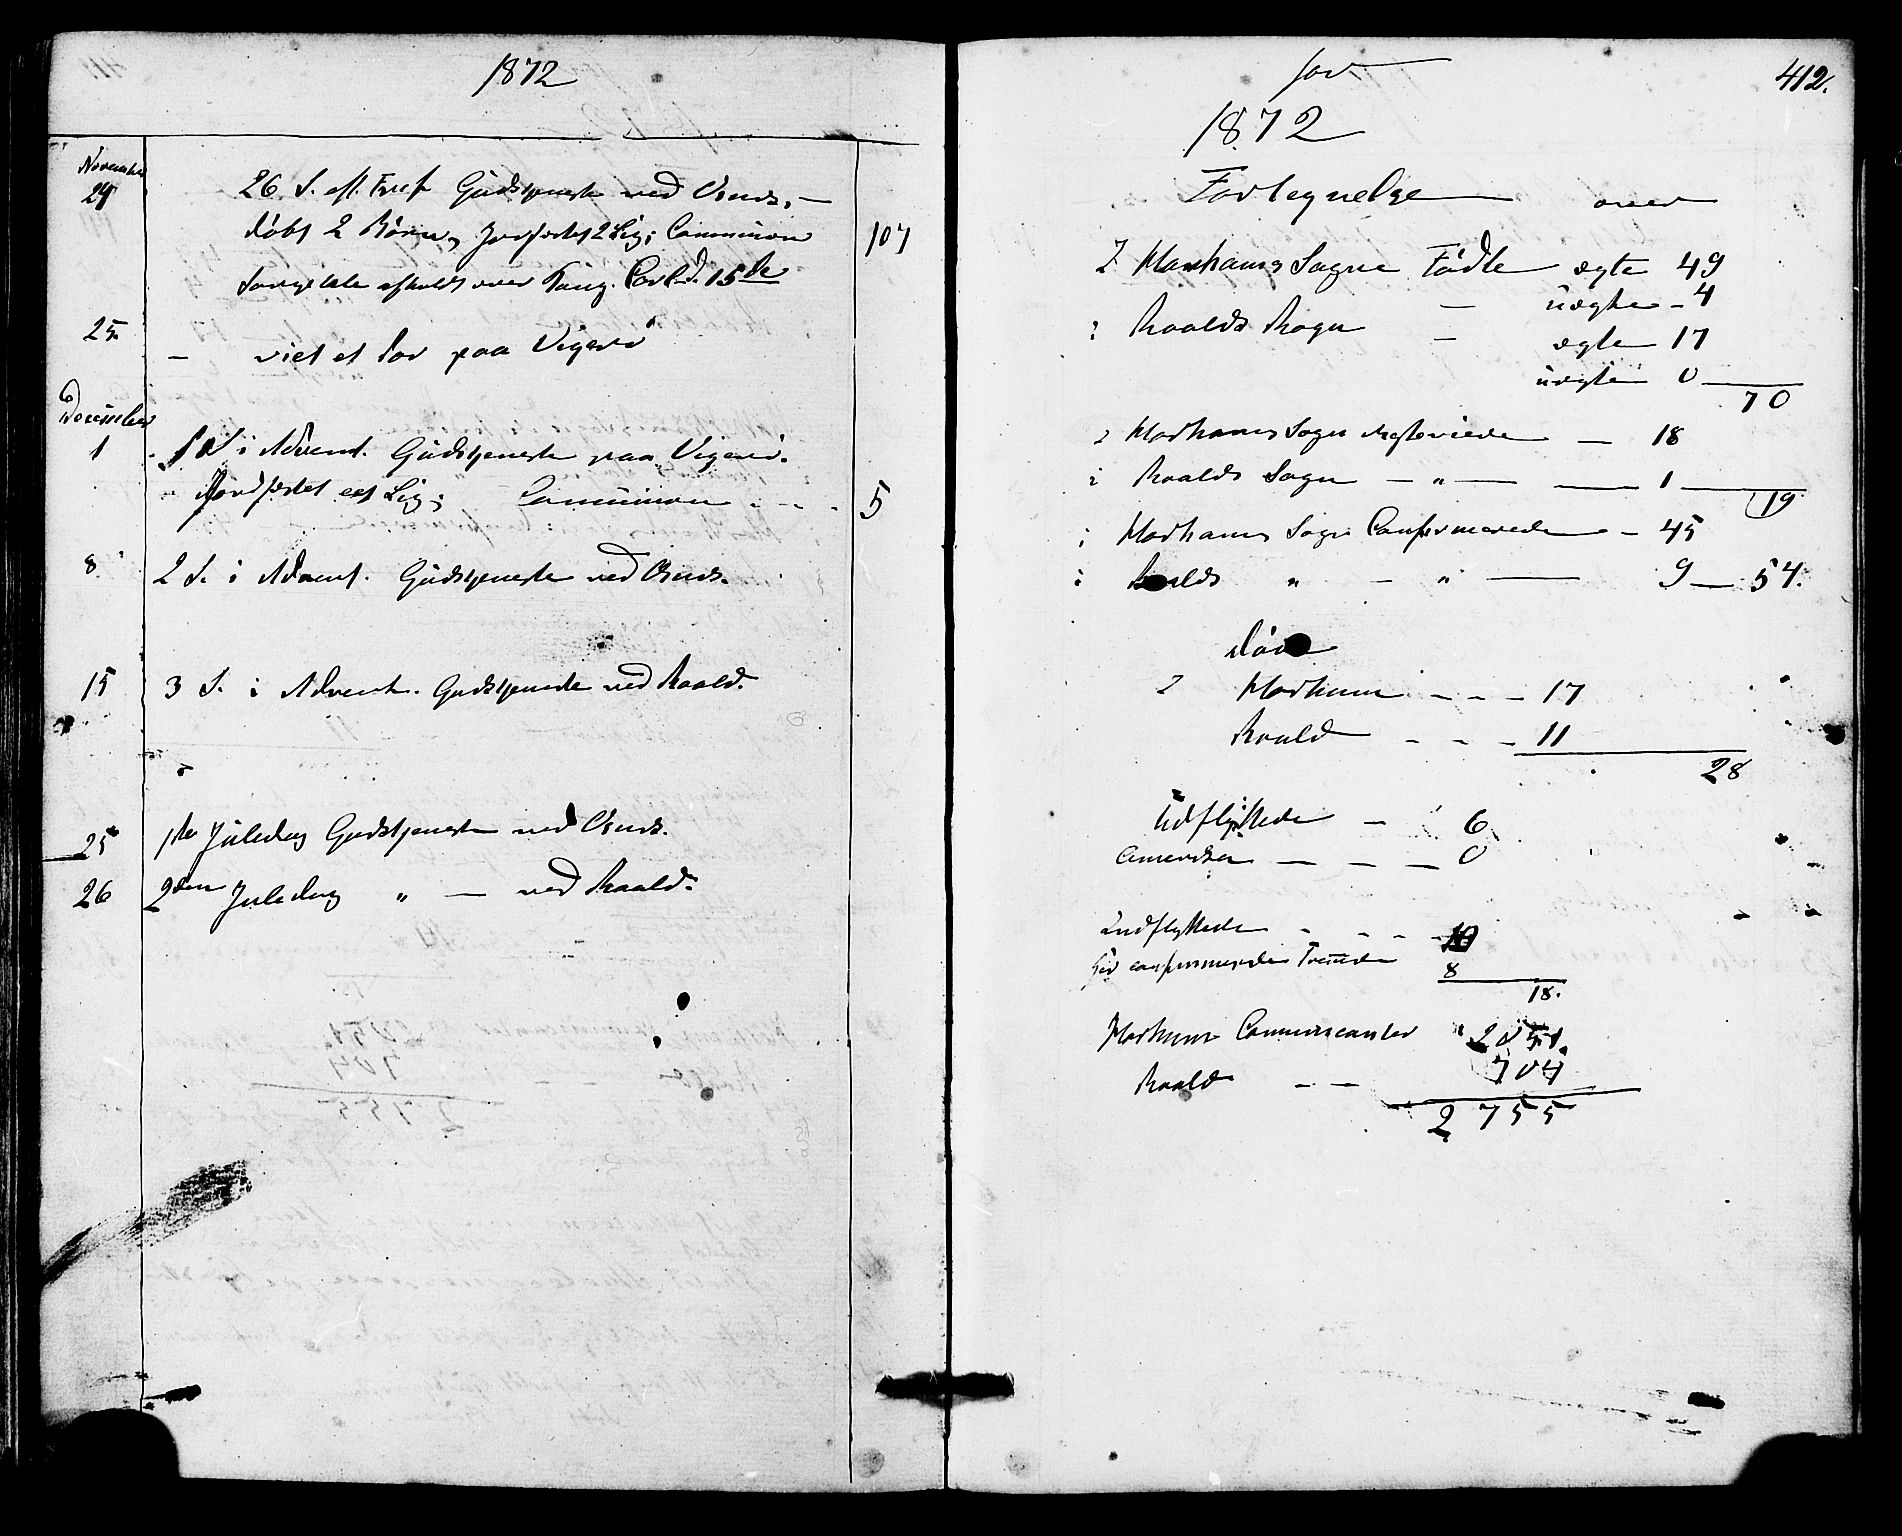 1872
November
24
26 S. eft. Tref Gudstjeneste ved Osnes.
døbt 2 Børn, Jordfæstet 2 Lig; Communion
107
Sørgetale afholdt over Kong Carl d. 15de
25
– viet et Par paa Vigerø
December
1
1 S i Advent. Gudstjeneste paa Vigerø.
Jordfæstet eet Lig; Communion - - -
5
8
2 S. i Advent. Gudstjeneste ved Osnes.
15
3 S. i Advent. Gudstjeneste ved Roald.
25
1ste Juledag Gudstjeneste ved Osnes.
26
2den Juledag „ — ved Roald.
412.
for
1872
Fortegnelse over
I Harhams Sogne Fødte ægte 49
— uægte - 4
i Roalds Sogn — ægte 17
uægte 0
70
i Harhams Sogn Ægteviede — 18
i Roalds Sogn — „ — — 1
19
i Harhams Sogn Confirmerede - 45
i Roalds „ — „ — 9 — 54.
Døde
I Harham - - - 17
Roald - - - 11
28
Udflyttede — 6
America — — — 0
Indflyttede - - - - 10
her confirmerede Fremmede 8
18.
Harham Communicanter 2051.
Roald — — 704
2755